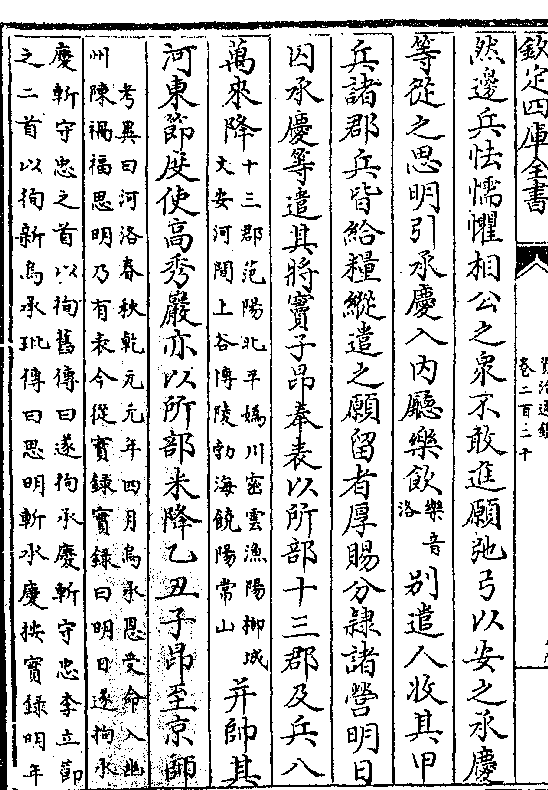 欽定四庫全書
資治通鑑
卷二百二十
然邊兵怯懦懼相公之衆不敢進願弛弓以安之承慶
等從之思明引承慶入内廳樂飲
樂音
洛
别遣人收其甲
兵諸郡兵皆給糧縱遣之願留者厚賜分隸諸營明日
囚承慶等遣其將竇子昂奉表以所部十三郡及兵八
萬來降
十三郡范陽北平媯川密雲漁陽柳城
文安河間上谷博陵勃海饒陽常山
并帥其
河東節度使高秀巖亦以所部来降乙丑子昂至京師
考異曰河洛春秋乾元元年四月烏承恩受命入幽
州陳禍福思明乃有表今從實録實録曰明日遂拘承
慶斬守忠之首以徇舊傳曰遂拘承慶斬守忠李立節
之二首以徇新烏承玼傳曰思明斬承慶按實録明年